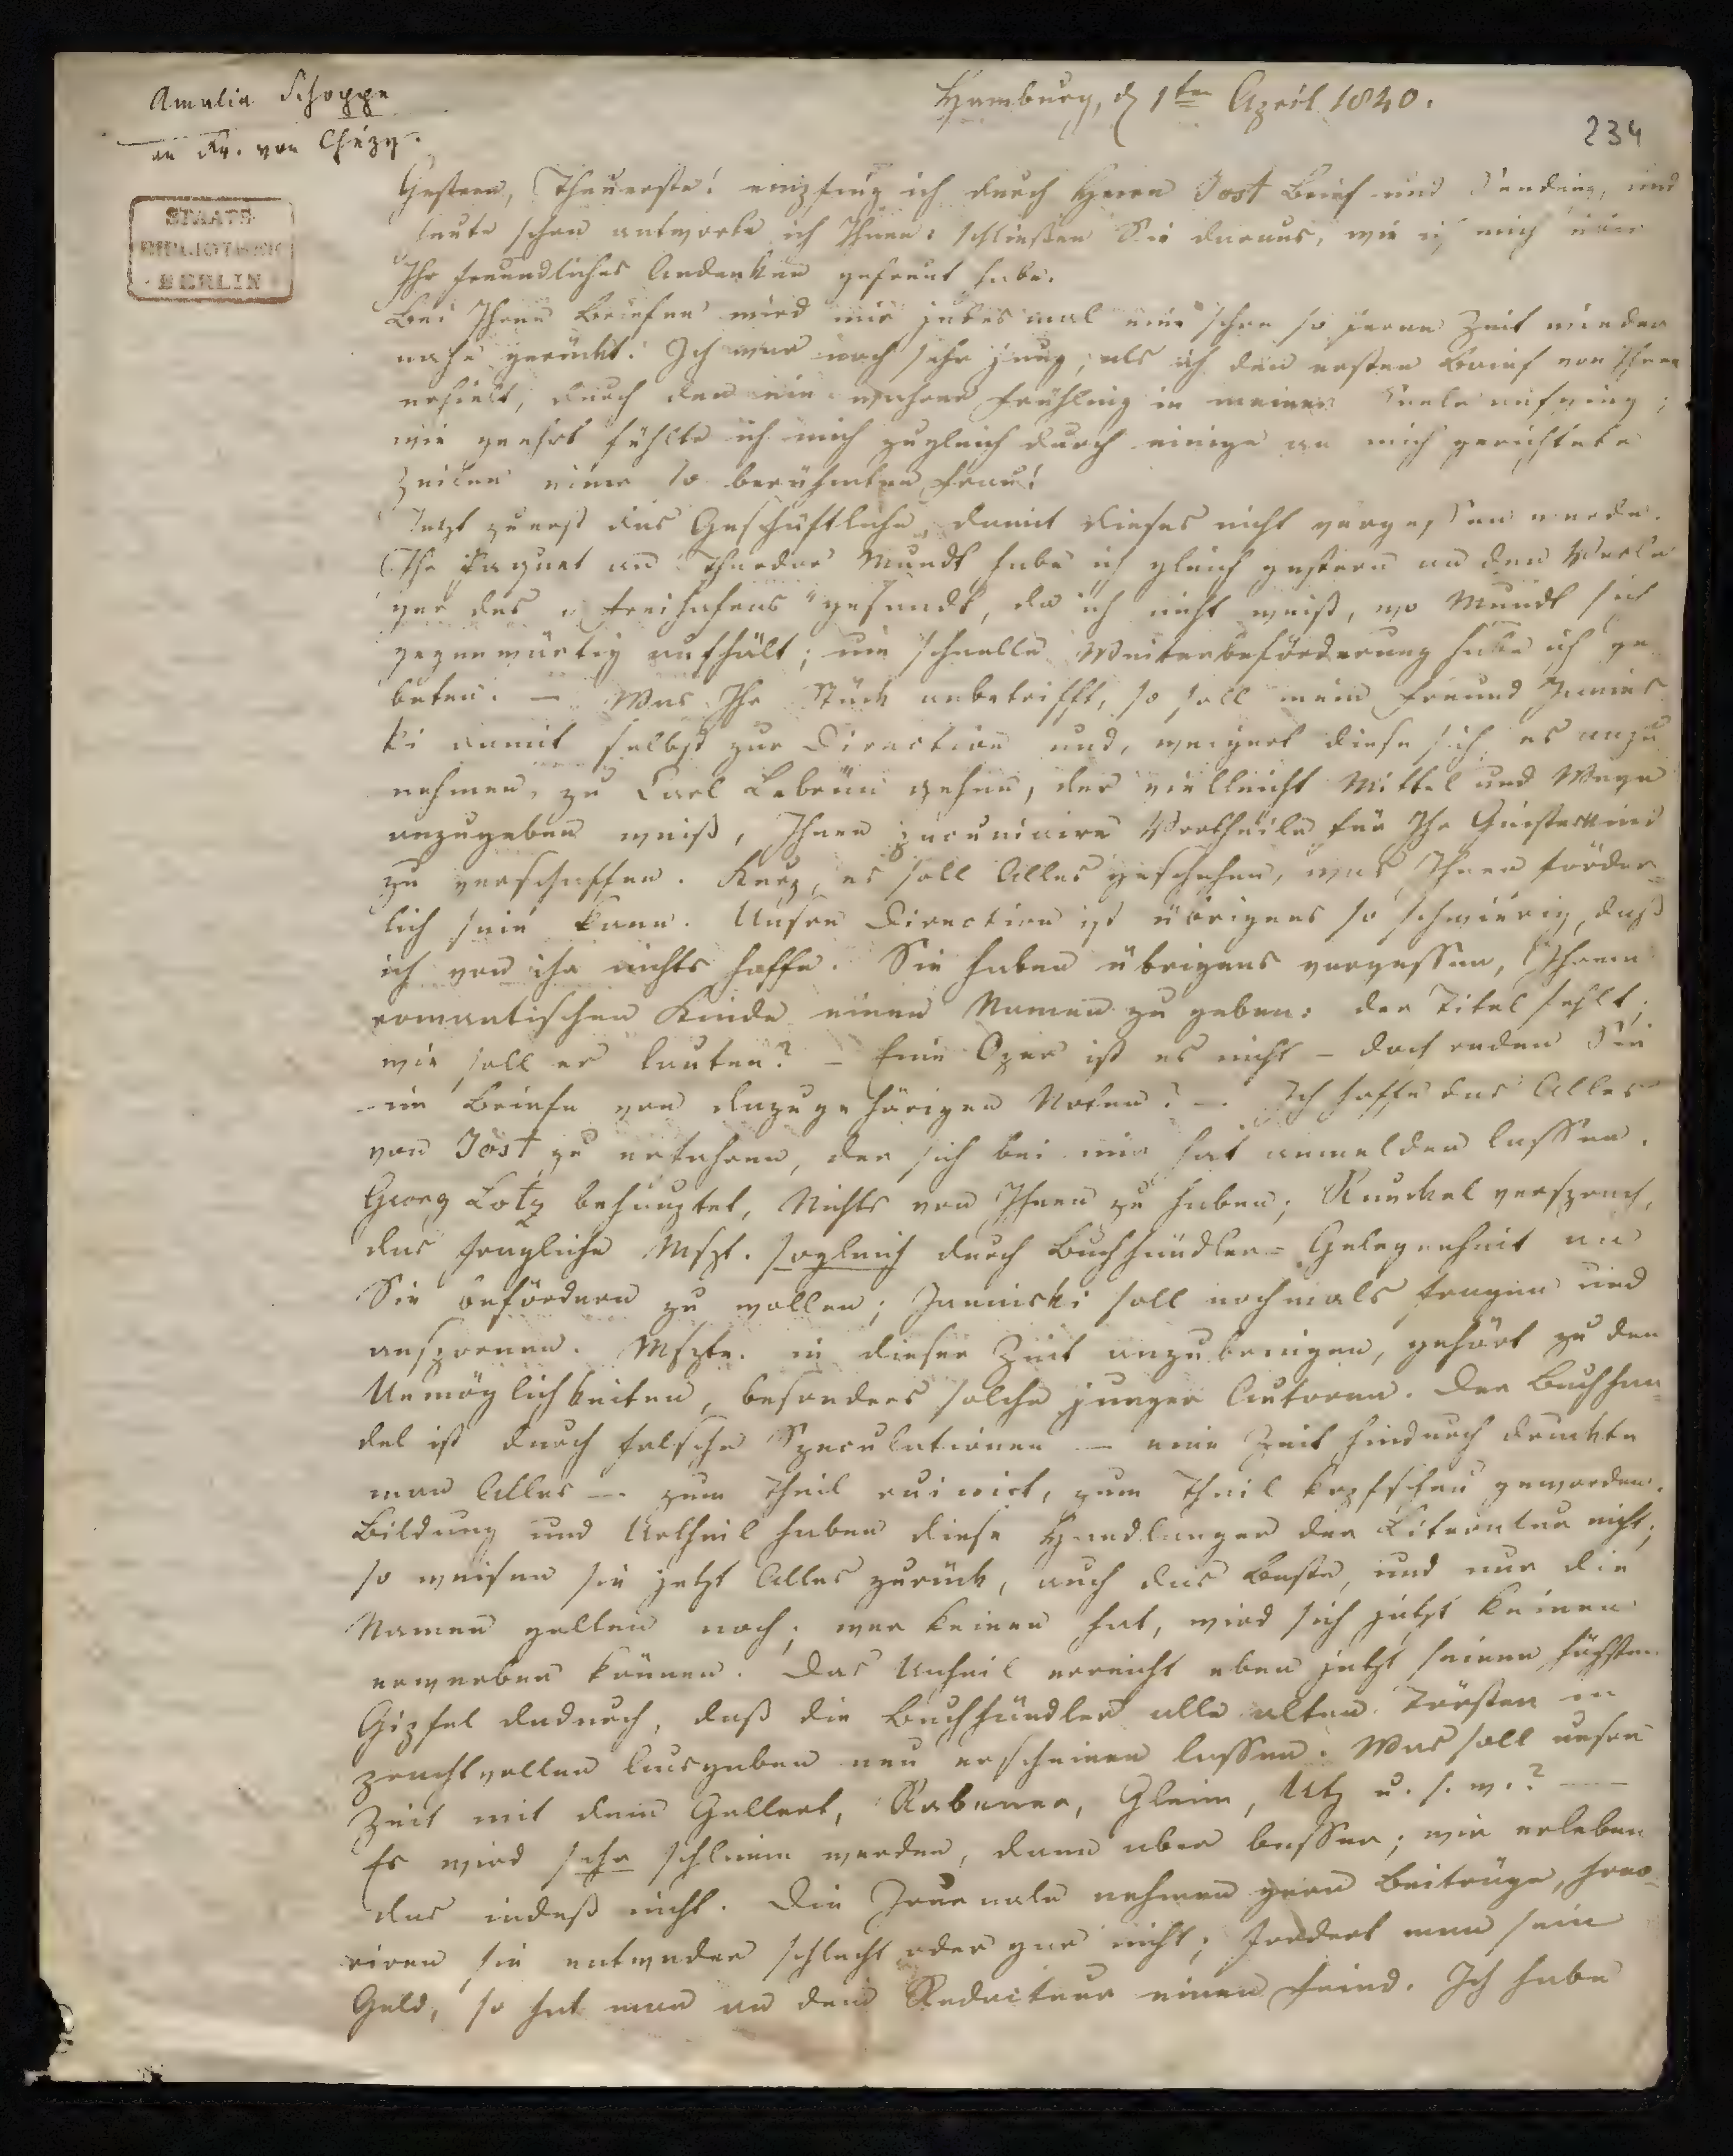 Amalia Schoppe
an Fr. von Chézy.
Hamburg, d 1ten April 1840.
234
STAATS-
BIBLIOTHEK
BERLIN
Gestern, Theuerste! empfing ich durch Herrn Jost Brief und Sendung, und
heute schon antworte ich Ihnen: schließen Sie daraus, wie ich mich über
Ihr freundliches Andenken gefreut habe.
Bei Ihren Briefen wird mir jedes mal eine schon so ferne Zeit wieder
nahe gerückt. Ich war noch sehr jung, als ich den ersten Brief von Ihnen
erhielt, durch den ein wahrer Frühling in meiner Seele aufging;
wie geehrt fühlte ich mich zugleich durch einige an mich gerichtete
Zeilen einer so berühmten Frau!
Jetzt zuerst das Geschäftliche, damit dieses nicht vergessen werde.
Ihr Paquet an Theodor Mundt habe ich gleich gestern an den Verle
ger des „Freihafens" gesandt, da ich nicht weiß, wo Mundt sich
gegenwärtig aufhält; um schnelle Weiterbeförderung habe ich ge
beten. — Was Ihr Stück anbetrifft, so soll mein Freund Janins
ki damit selbst zur Direction und, weigert diese sich, es anzu
nehmen, zu Carl Lebrün gehen, der vielleicht Mittel und Wege
anzugeben weiß, Ihnen pecuniaire Vortheile für Ihr Geisteskind
zu verschaffen. Kurz, es soll Alles geschehen, was Ihnen förder-
lich sein kann. Unsre Direction ist übrigens so schwierig, daß
ich von ihr nichts hoffe. Sie haben übrigens vergessen, Ihrem
romantischen Kinde einen Namen zu geben: der Titel fehlt;
wie soll er lauten? – Eine Oper ist es nicht – doch reden Sie
im Briefe von dazugehörigen Noten? —. Ich hoffe das Alles
von Jost zu erfahren, der sich bei mir hat anmelden lassen.
Georg Lotz behauptet, Nichts von Ihnen zu haben; Runckel versprach,
das fragliche Mspt. sogleich durch Buchhändler-Gelegenheit an
Sie befördern zu wollen; Janinski soll nochmals fragen und
anspornen. Mspte. in dieser Zeit anzubringen, gehört zu den
Unmöglichkeiten, besonders solche junger Autoren. Der Buchhan-
del ist durch falsche Speculationen — eine Zeit hindurch druckte
man Alles —. zum Theil ruinirt, zum Theil kopfscheu geworden.
Bildung und Urtheil haben diese Handlanger der Literatur nicht;
so weisen sie jetzt Alles zurück, auch das Beste, und nur die
Namen gelten noch; wer keinen hat, wird sich jetzt keinen
erwerben können. Das Unheil erreicht eben jetzt seinen höchsten
Gipfel dadurch, daß die Buchhändler alle alten Tröster in
prachtvollen Ausgaben neu erscheinen lassen. Was soll unsre
Zeit mit dem Gellert, Rabener, Gleim, Utz u. s. w.? —
Es wird sehr schlimm werden, dann aber besser; wir erleben
das indeß nicht. Die Journale nehmen gern Beiträge, hono-
riren sie entweder schlecht oder gar nicht; fordert man sein
Geld, so hat man an dem Redacteur einen Feind. Ich habe